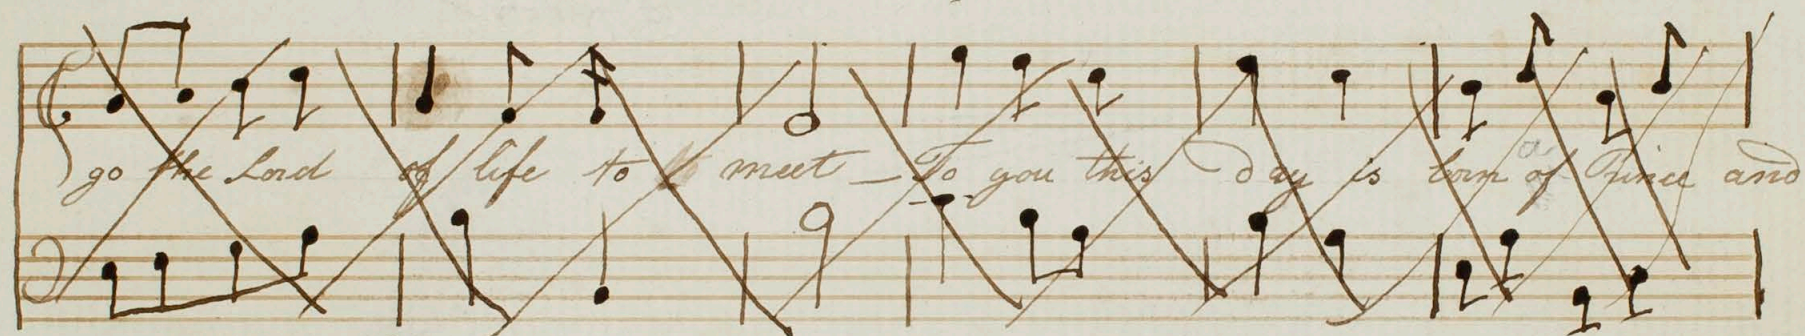 go the Lord of life to meet – To you this day is born of a Prince and